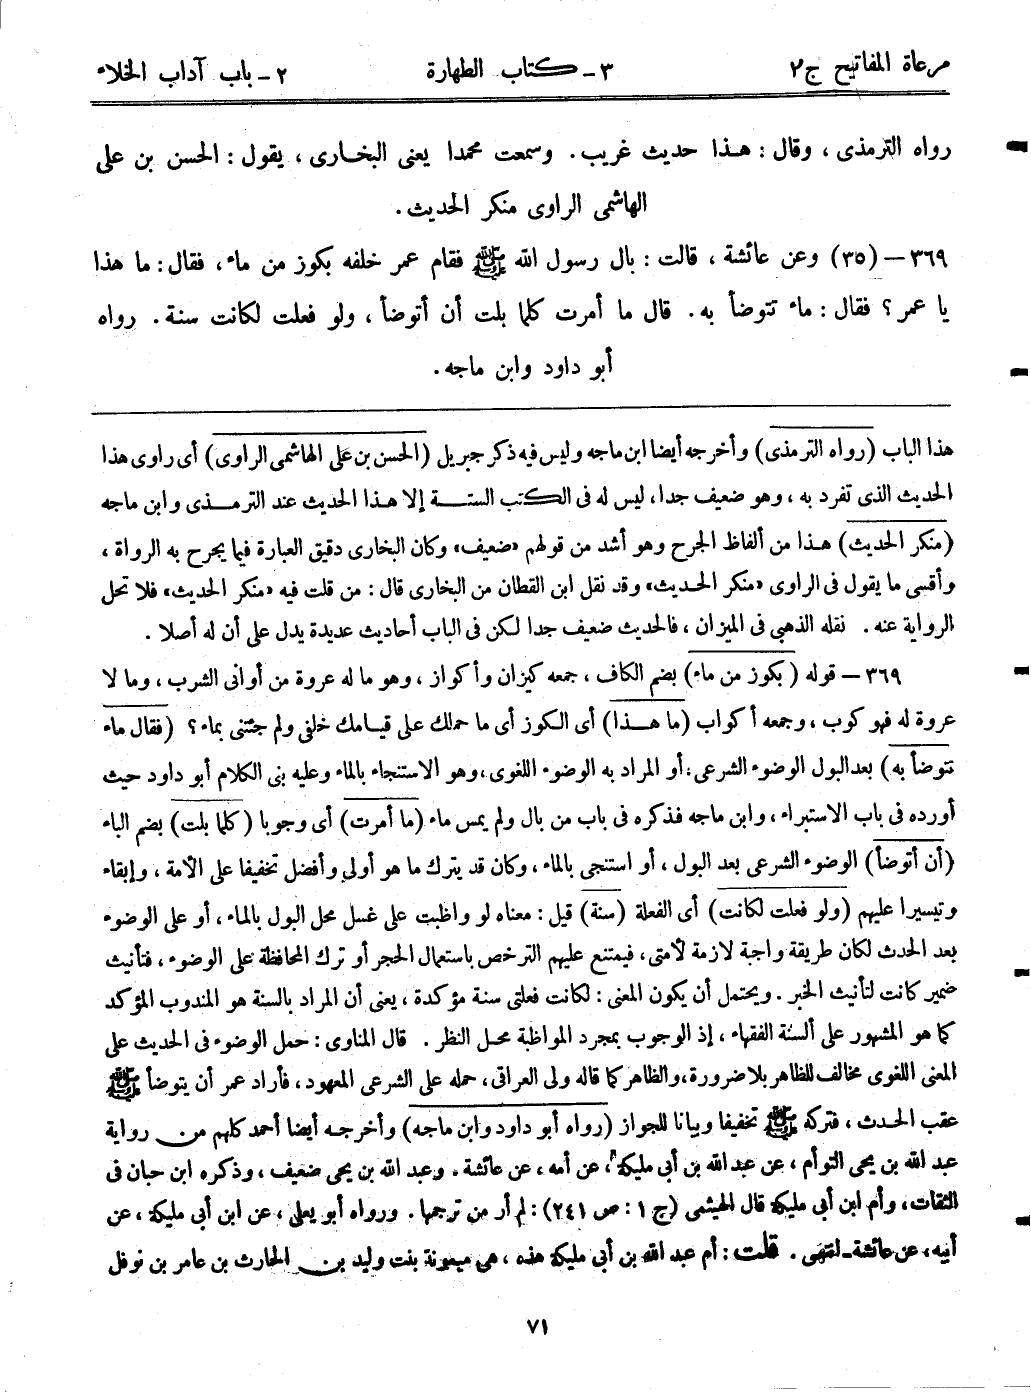 مرعاة المفاتيح ج٢
٣ - كتاب الطهارة
٢ - باب آداب الخلاء
رواه الترمذى ، وقال : هذا حديث غريب . وسمعت محمدا يعنى البخارى ، يقول : الحسن بن على
الهاشمى الراوى منكر الحديث .
٣٦٩ – (٣٥) وعن عائشة ، قالت : بال رسول الله ﷺ فقام عمر خلفه بكوز من ماء ، فقال : ما هذا
يا عمر ؟ فقال : ماء تتوضأ به . قال ما أمرت كلما بلت أن أتوضأ ، ولو فعلت لكانت سنة . رواه
أبو داود وابن ماجه .
هذا الباب (رواه الترمذى) وأخرجه أيضا ابن ماجه وليس فيه ذكر جبريل (الحسن بن على الهاشمى الراوى) أى راوى هذا
الحديث الذى تفرد به ، وهو ضعيف جدا ، ليس له فى الكتب الستة إلا هذا الحديث عند الترمذى وابن ماجه
(منكر الحديث) هذا من ألفاظ الجرح وهو أشد من قولهم «ضعيف» وكان البخارى دقيق العبارة فيما يجرح به الرواة ،
وأقسى ما يقول فى الراوى «منكر الحديث» وقد نقل ابن القطان من البخارى قال : من قلت فيه «منكر الحديث» فلا تحل
الرواية عنه . نقله الذهبى فى الميزان ، فالحديث ضعيف جدا لكن فى الباب أحاديث عديدة يدل على أن له أصلا .
٣٦٩ – قوله (بكوز من ماء) بضم الكاف ، جمعه كيزان وأكواز ، وهو ما له عروة من أوانى الشرب ، وما لا
عروة له فهو كوب ، وجمعه أكواب (ما هذا) أى الكوز أى ما حملك على قيامك خلفى ولم جئتنى بماء ؟ (فقال ماء
تتوضأ به) بعد البول الوضوء الشرعى ، أو المراد به الوضوء اللغوى ، وهو الاستنجاء بالماء وعليه بنى الكلام أبو داود حيث
أورده فى باب الاستبراء ، وابن ماجه فذكره فى باب من بال ولم يمس ماء (ما أمرت) أى وجوبا (كلما بلت) بضم الباء
(أن أتوضأ) الوضوء الشرعى بعد البول ، أو استنجى بالماء ، وكان قد يترك ما هو أولى وأفضل تخفيفا على الأمة ، وإبقاء
وتيسيرا عليهم (ولو فعلت لكانت) أى الفعلة (سنة) قيل : معناه لو واظبت على غسل محل البول بالماء ، أو على الوضوء
بعد الحدث لكان طريقة واجبة لازمة لأمتى ، فيمتنع عليهم الترخص باستعمال الحجر أو ترك المحافظة على الوضوء ، فتأنيث
ضمير كانت لتأنيث الخبر . ويحتمل أن يكون المعنى : لكانت فعلتى سنة مؤكدة ، يعنى أن المراد بالسنة هو المندوب المؤكد
كما هو المشهور على ألسنة الفقهاء ، إذ الوجوب بمجرد المواظبة محل النظر . قال المناوى : حمل الوضوء فى الحديث على
المعنى اللغوى مخالف للظاهر بلا ضرورة ، والظاهر كما قاله ولى العراقى ، حمله على الشرعى المعهود ، فأراد عمر أن يتوضأ ﷺ
عقب الحدث ، فتركه ﷺ تخفيفا وبيانا للجواز (رواه أبو داود وابن ماجه) وأخرجه أيضا أحمد كلهم من رواية
عبد الله بن يحيى التوأم ، عن عبد الله بن أبى مليكة ، عن أمه ، عن عائشة . وعبد الله بن يحيى ضعيف ، وذكره ابن حبان فى
الثقات ، وأم ابن أبى مليكة قال الهيثمى (ج ١ : ص ٢٤١) : لم أر من ترجمها . ورواه أبو يعلى ، عن ابن أبى مليكة ، عن
أبيه ، عن عائشة - انتهى . قلت : أم عبد الله بن أبى مليكة هذه ، هى ميمونة بنت وليد بن الحارث بن عامر بن نوفل
٧١